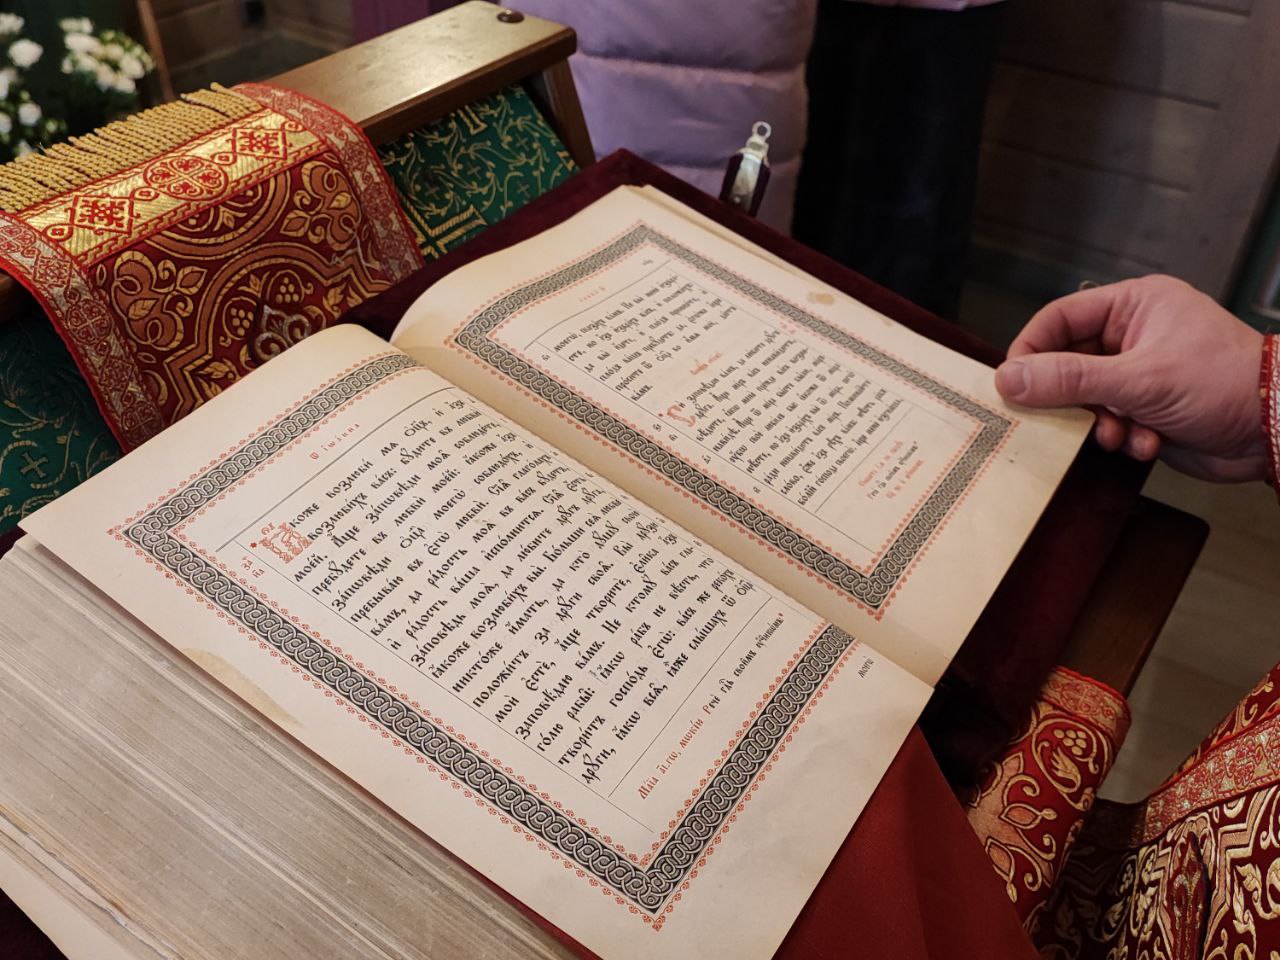 Ѿ і҆ѡа́нна
за҃
ꙗ҆́коже возлюбѝ мѧ̀ ѻ҆ц҃ъ, и҆ а҆́зъ
возлюби́хъ ва́съ: бꙋ́дите въ любвѝ
мое́й. А҆́ще за́пѡвѣди моѧ̑ соблюде́те,
пребꙋ́дете въ любвѝ мое́й: ꙗ҆́коже а҆́зъ
за́пѡвѣди ѻ҆ц҃а̀ моегѡ̀ соблюдо́хъ, и҆
пребыва́ю въ є҆гѡ̀ любвѝ. Сїѧ̑ глаго́лахъ
ва́мъ, да ра́дость моѧ̀ въ ва́съ бꙋ́детъ,
и҆ ра́дость ва́ша и҆спо́лнитсѧ. Сїѧ̀ є҆́сть
за́повѣдь моѧ̀, да лю́бите дрꙋ́гъ дрꙋ́га,
ꙗ҆́коже возлюби́хъ вы̀. Бо́льши сеѧ̀ любвѐ
никто́же и҆́мать, да кто̀ дꙋ́шꙋ свою̀
положи́тъ за дрꙋ́ги своѧ̑. Вы̀ дрꙋ́зи
моѝ є҆стѐ, а҆́ще творитѐ, є҆ли̑ка а҆́зъ
заповѣ́даю ва́мъ. Не ктомꙋ̀ ва́съ гла-
го́лю рабы̑: ꙗ҆́кѡ ра́бъ не вѣ́сть, что̀
твори́тъ госпо́дь є҆гѡ̀: ва́съ же реко́хъ
дрꙋ́ги, ꙗ҆́кѡ всѧ̑, ꙗ҆̀же слы́шахъ ѿ ѻ҆ц҃а̀
Ма́їа а҃і-гѡ, мѡкі́и Речѐ гдⷭ҇ь свои̑мъ ᲂу҆чн҃кѡ́мъ:
моегѡ̀
моегѡ̀, сказа́хъ ва́мъ. Не вы̀ менѐ и҆збра́-
сте, но а҆́зъ и҆збра́хъ ва́съ, и҆ положи́хъ
да вы̀ и҆́дете, и҆ пло́дъ принесе́те,
и҆ пло́дъ ва́шъ пребꙋ́детъ, да є҆гѡ́же а҆́ще
про́сите ѿ ѻ҆ц҃а̀ во и҆́мѧ моѐ, да́стъ
ва́мъ.
Сїѧ̑ заповѣ́даю ва́мъ, да лю́бите дрꙋ́гъ
дрꙋ́га. А҆́ще мі́ръ ва́съ ненави́дитъ,
вѣ́дите, ꙗ҆́кѡ менѐ пре́жде ва́съ возне-
нави́дѣ. А҆́ще ѿ мі́ра бы́сте бы́ли, мі́ръ
ᲂу҆́бѡ своѐ люби́лъ бы̀: ꙗ҆́коже ѿ мі́ра
нѣ́сте, но а҆́зъ и҆збра́хъ вы̀ ѿ мі́ра, сегѡ̀
ра́ди ненави́дитъ ва́съ мі́ръ. Помина́йте
сло́во, є҆́же а҆́зъ рѣ́хъ ва́мъ: нѣ́сть ра́бъ
бо́лїй го́спода своегѡ̀. А҆́ще менѐ и҆згна́ша,